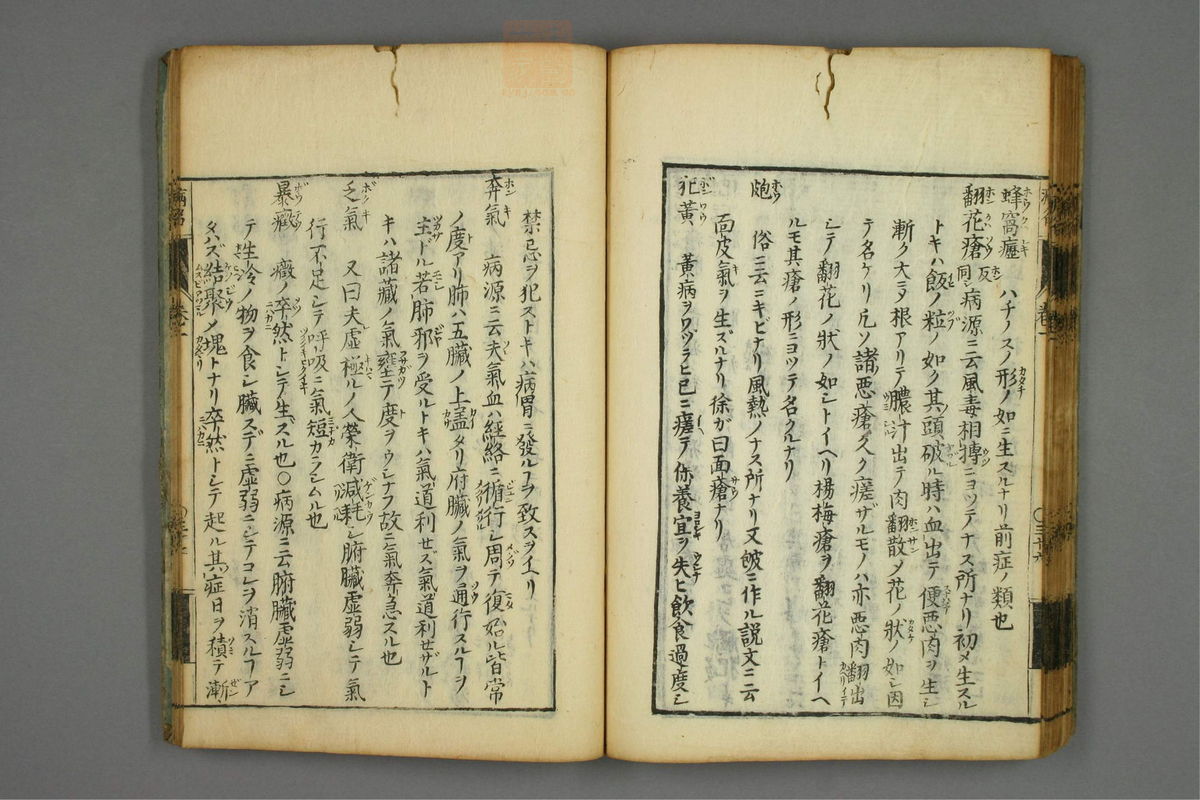 蜂窩癧 ハチノスノ形ノ如ニ生スルナリ前症ノ類也
翻花瘡 同シ病源ニ云風毒相摶ニヨツテナス所ナリ初メ生スル
トキハ飯ノ粒ノ如ク其頭破ル時ハ血出テ便悪肉ヲ生シ
漸ク大ニ〆根アリテ膿汁出テ肉翻散〆花ノ状ノ如シ因
テ名ケリ凡ソ諸悪瘡久ク瘥ザルモノハ亦悪肉翻出
シテ翻花ノ状ノ如シトイヘリ楊梅瘡ヲ翻花瘡トイヘ
ルモ其瘡ノ形ニヨツテ名クルナリ
皰 俗ニ云ニキビナリ風熱ノナス所ナリ又皰ニ作ル説文ニ云
面皮氣ヲ生ズルナリ徐ガ曰面瘡ナリ
犯黄 黄病ヲワツラヒ已ニ瘥テ保養宜ヲ失ヒ飲食過度シ
禁忌ヲ犯ストキハ病胃ニ發ルヿヲ致スヲイヘリ
奔氣 病源ニ云夫氣血ハ経絡ニ循行シ周テ復始ル皆常
ノ度アリ肺ハ五臓ノ上盖タリ府臓ノ氣ヲ通行スルヿヲ
主ドル若肺邪ヲ受ルトキハ氣道利セズ氣道利せザルト
キハ諸藏ノ氣壅テ度ヲウシナフ故ニ氣奔急スル也
乏氣 又曰夫虚極ルノ人榮衛減耗シ腑臓虚弱シテ氣
行不足シテ呼吸ニ氣短カラシムル也
暴癥 癥ノ卒然トシテ生ズル也〇病源ニ云腑臓虚弱ニシ
テ生冷ノ物ヲ食シ臓スデニ虚弱ニシテコレヲ消スルヿア
タハズ結聚〆塊トナリ卒然トシテ起ル其症日ヲ積テ漸